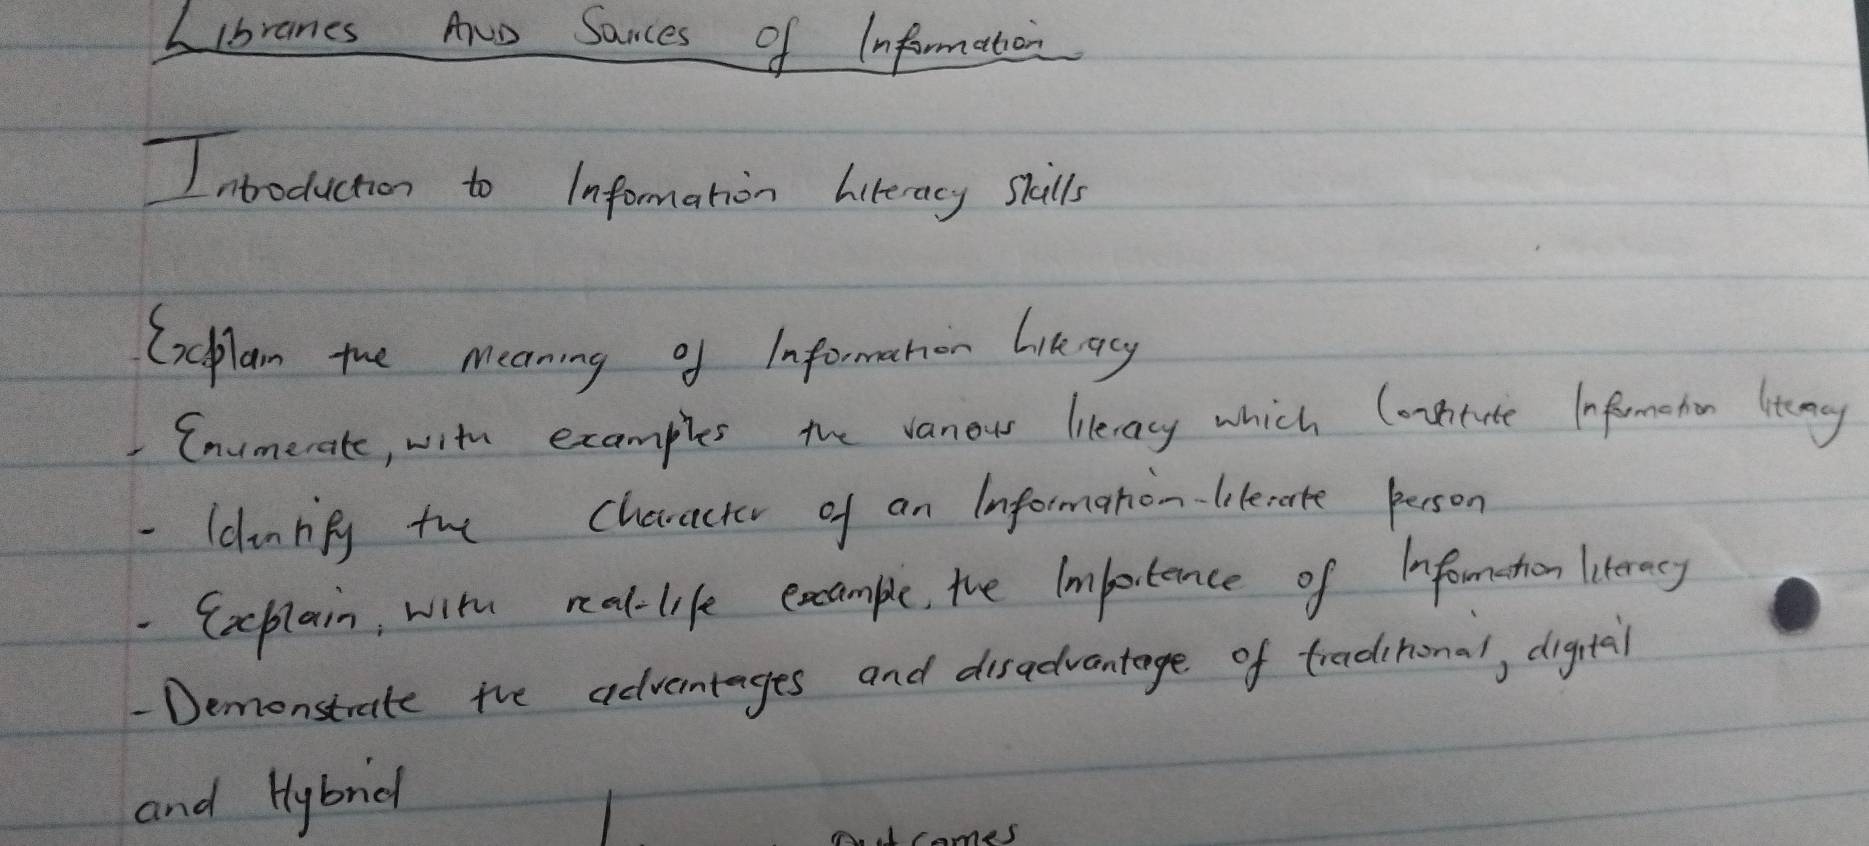 Libraries AND Sources of Information
Introduction to Information Literacy Skills
Explain the meaning of Information Literacy
- Enumerate, with examples the various literacy which Constitute Information literacy
- Identify the Character of an Information-literate person
- Explain, with real-life example, the Importance of Information literacy
- Demonstrate the advantages and disadvantage of traditional, digital
and Hybrid
Outcomes